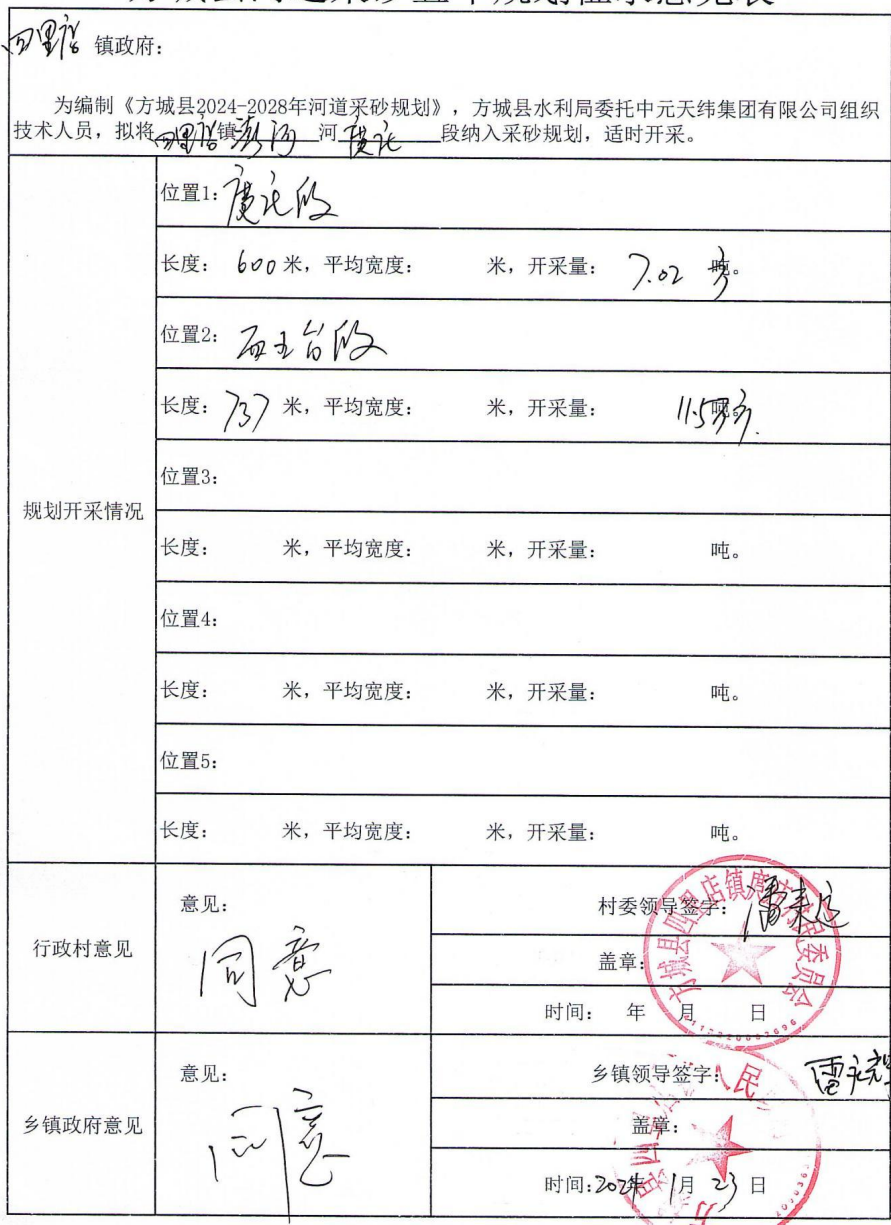 四里店 镇政府：
为编制《方城县2024-2028年河道采砂规划》，方城县水利局委托中元天纬集团有限公司组织
技术人员，拟将四里店镇澎河 河 段纳入采砂规划，适时开采。
规划开采情况
位置1：段
长度： 600 米，平均宽度： 米，开采量： 7.02 万吨。
位置2： 台段
长度： 737 米，平均宽度： 米，开采量： 11.5万吨。
位置3：
长度： 米，平均宽度： 米，开采量： 吨。
位置4：
长度： 米，平均宽度： 米，开采量： 吨。
位置5：
长度： 米，平均宽度： 米，开采量： 吨。
行政村意见
意见：
同意
村委领导签字：潘
盖章：
时间： 年 月 日
方城县四里店镇村民委员会
乡镇政府意见
意见：
同意
乡镇领导签字： 雷
盖章：
时间：202年 1月 23 日
县四里店 人民